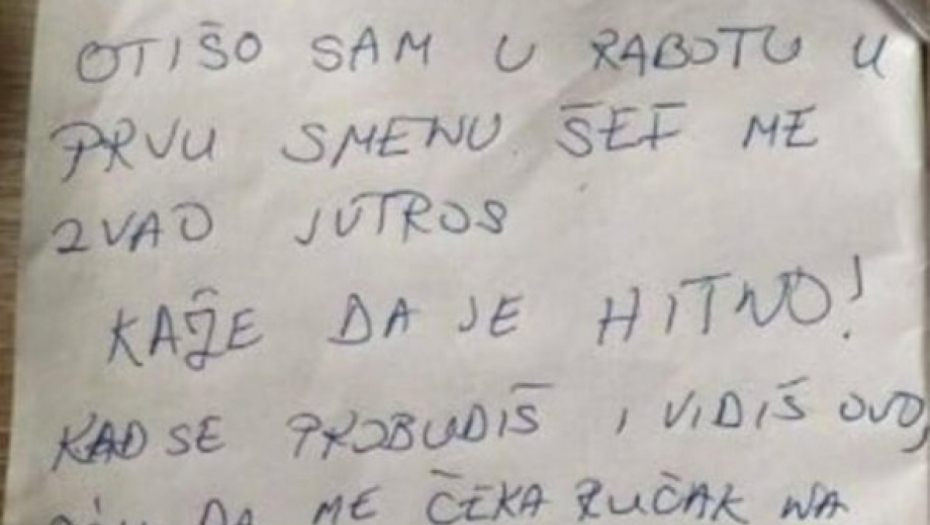 OTIŠO SAM U RABOTU U
PRVU SMENU. ŠEF ME
ZVAO JUTROS
KAŽE DA JE HITNO!
KAD SE PROBUDIŠ I VIDIŠ OVO,
DA ME ČEKA RUČAK NA